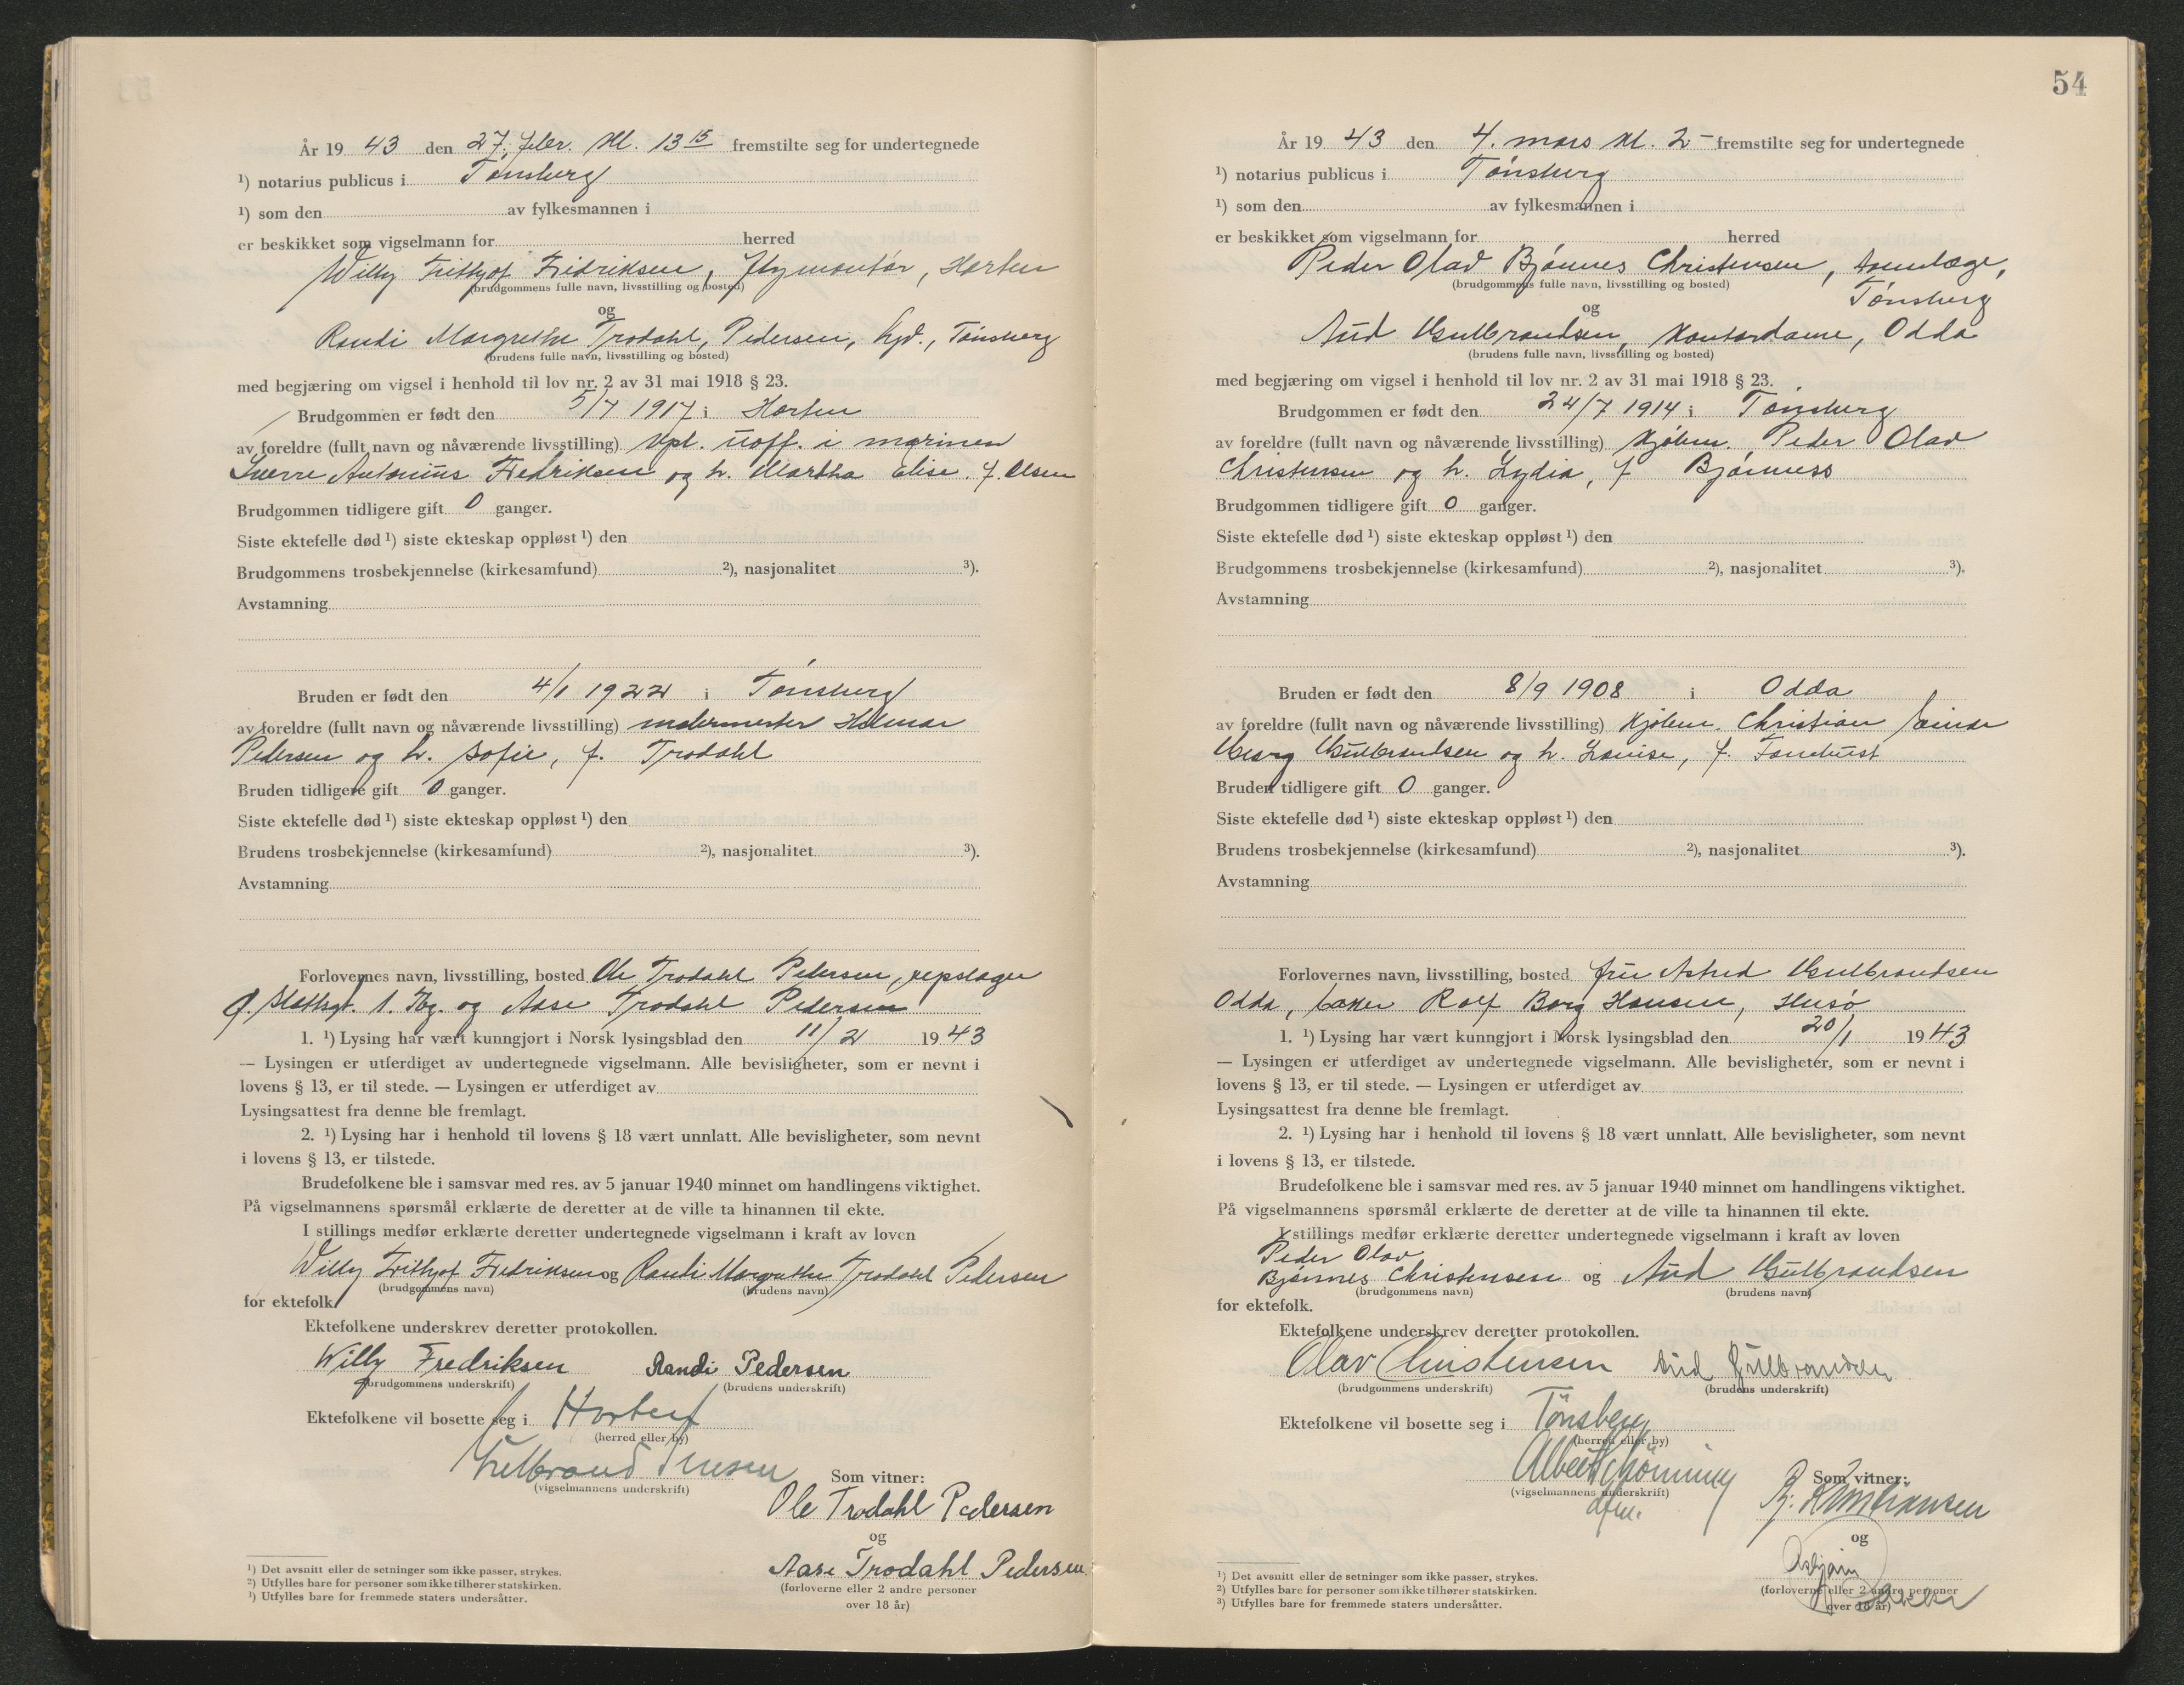 År 19 43 den 27. febr. kl. 13 15 fremstilte seg for undertegnede
1) notarius publicus i Tønsberg
1) som den av fylkesmannen i
er beskikket som vigselmann for herred
Willy Frithjof Fredriksen, flymontør, Horten
(brudgommens fulle navn, livsstilling og bosted)
og
Randi Margrethe Trodahl, Pedersen, syd., Tønsberg
(brudens fulle navn, livsstilling og bosted)
med begjæring om vigsel i henhold til lov nr. 2 av 31 mai 1918 § 23.
Brudgommen er født den 5/7 1917 i Horten
av foreldre (fullt navn og nåværende livsstilling) vpl. uoff. i marinen
Sverre Antonius Fredriksen og h. Martha Elise f. Olsen
Brudgommen tidligere gift 0 ganger.
Siste ektefelle død 1) siste ekteskap oppløst 1) den
Brudgommens trosbekjennelse (kirkesamfund) 2), nasjonalitet 3).
Avstamning
Bruden er født den 4/1 1922 i Tønsberg
av foreldre (fullt navn og nåværende livsstilling) malermester Hilmar
Pedersen og h. Sofie, f. Trodahl
Bruden tidligere gift 0 ganger.
Siste ektefelle død 1) siste ekteskap oppløst 1) den
Brudens trosbekjennelse (kirkesamfund) 2), nasjonalitet 3).
Avstamning
Forlovernes navn, livsstilling, bosted Ole Trodahl Pedersen, repslager
1. Tbg. og Aase Trodahl Pedersen
1. 1) Lysing har vært kunngjort i Norsk lysingsblad den 11/2 19 43
— Lysingen er utferdiget av undertegnede vigselmann. Alle bevisligheter, som er nevnt i
lovens § 13, er til stede. — Lysingen er utferdiget av
Lysingsattest fra denne ble fremlagt.
2. 1) Lysing har i henhold til lovens § 18 vært unnlatt. Alle bevisligheter, som nevnt
i lovens § 13, er tilstede.
Brudefolkene ble i samsvar med res. av 5 januar 1940 minnet om handlingens viktighet.
På vigselmannens spørsmål erklærte de deretter at de ville ta hinannen til ekte.
I stillings medfør erklærte deretter undertegnede vigselmann i kraft av loven
Willy Frithjof Fredriksen og Randi Margrethe Trodahl Pedersen
(brudgommens navn) (brudens navn)
for ektefolk.
Ektefolkene underskrev deretter protokollen.
Willy Fredriksen Randi Pedersen
(brudgommens underskrift) (brudens underskrift)
Ektefolkene vil bosette seg i Horten
(herred eller by)
(vigselmannens underskrift)
Som vitner:
Ole Trodahl Pedersen
og
Aase Trodahl Pedersen
(forloverne eller 2 andre personer
over 18 år)
1) Det avsnitt eller de setninger som ikke passer, strykes.
2) Utfylles bare for personer som ikke tilhører statskirken.
3) Utfylles bare for fremmede staters undersåtter.
54
År 19 43 den 4. mars kl. 2 – fremstilte seg for undertegnede
1) notarius publicus i Tønsberg
1) som den av fylkesmannen i
er beskikket som vigselmann for herred
Peder Olav Bjønnes Christensen, tannlæge,
Tønsberg
(brudgommens fulle navn, livsstilling og bosted)
og
Aud Gulbrandsen, kontordame, Odda
(brudens fulle navn, livsstilling og bosted)
med begjæring om vigsel i henhold til lov nr. 2 av 31 mai 1918 § 23.
Brudgommen er født den 24/7 1914 i Tønsberg
av foreldre (fullt navn og nåværende livsstilling) kjøbm. Peder Olav
Christensen og h. Lydia, f Bjønness
Brudgommen tidligere gift 0 ganger.
Siste ektefelle død 1) siste ekteskap oppløst 1) den
Brudgommens trosbekjennelse (kirkesamfund) 2), nasjonalitet 3).
Avstamning
Bruden er født den 8/9 1908 i Odda
av foreldre (fullt navn og nåværende livsstilling) kjøbm. Christian Einar
Georg Gulbrandsen og h. Louise, f.
Bruden tidligere gift 0 ganger.
Siste ektefelle død 1) siste ekteskap oppløst 1) den
Brudens trosbekjennelse (kirkesamfund) 2), nasjonalitet 3).
Avstamning
Forlovernes navn, livsstilling, bosted fru Astrid Gulbrandsen
Odda, baker Rolf Borg Hansen, Husø
1. 1) Lysing har vært kunngjort i Norsk lysingsblad den 20/1 19 43
— Lysingen er utferdiget av undertegnede vigselmann. Alle bevisligheter, som er nevnt i
lovens § 13, er til stede. — Lysingen er utferdiget av
Lysingsattest fra denne ble fremlagt.
2. 1) Lysing har i henhold til lovens § 18 vært unnlatt. Alle bevisligheter, som nevnt
i lovens § 13, er tilstede.
Brudefolkene ble i samsvar med res. av 5 januar 1940 minnet om handlingens viktighet.
På vigselmannens spørsmål erklærte de deretter at de ville ta hinannen til ekte.
I stillings medfør erklærte deretter undertegnede vigselmann i kraft av loven
Peder Olav
Bjønnes Christensen og Aud Gulbrandsen
(brudgommens navn) (brudens navn)
for ektefolk.
Ektefolkene underskrev deretter protokollen.
Olav Christensen Aud Gulbrandsen
(brudgommens underskrift) (brudens underskrift)
Ektefolkene vil bosette seg i Tönsberg
(herred eller by)
(vigselmannens underskrift)
dfm.
Som vitner:
Kristiansen
og
Asbjørn
(forloverne eller 2 andre personer
over 18 år)
1) Det avsnitt eller de setninger som ikke passer, strykes.
2) Utfylles bare for personer som ikke tilhører statskirken.
3) Utfylles bare for fremmede staters undersåtter.